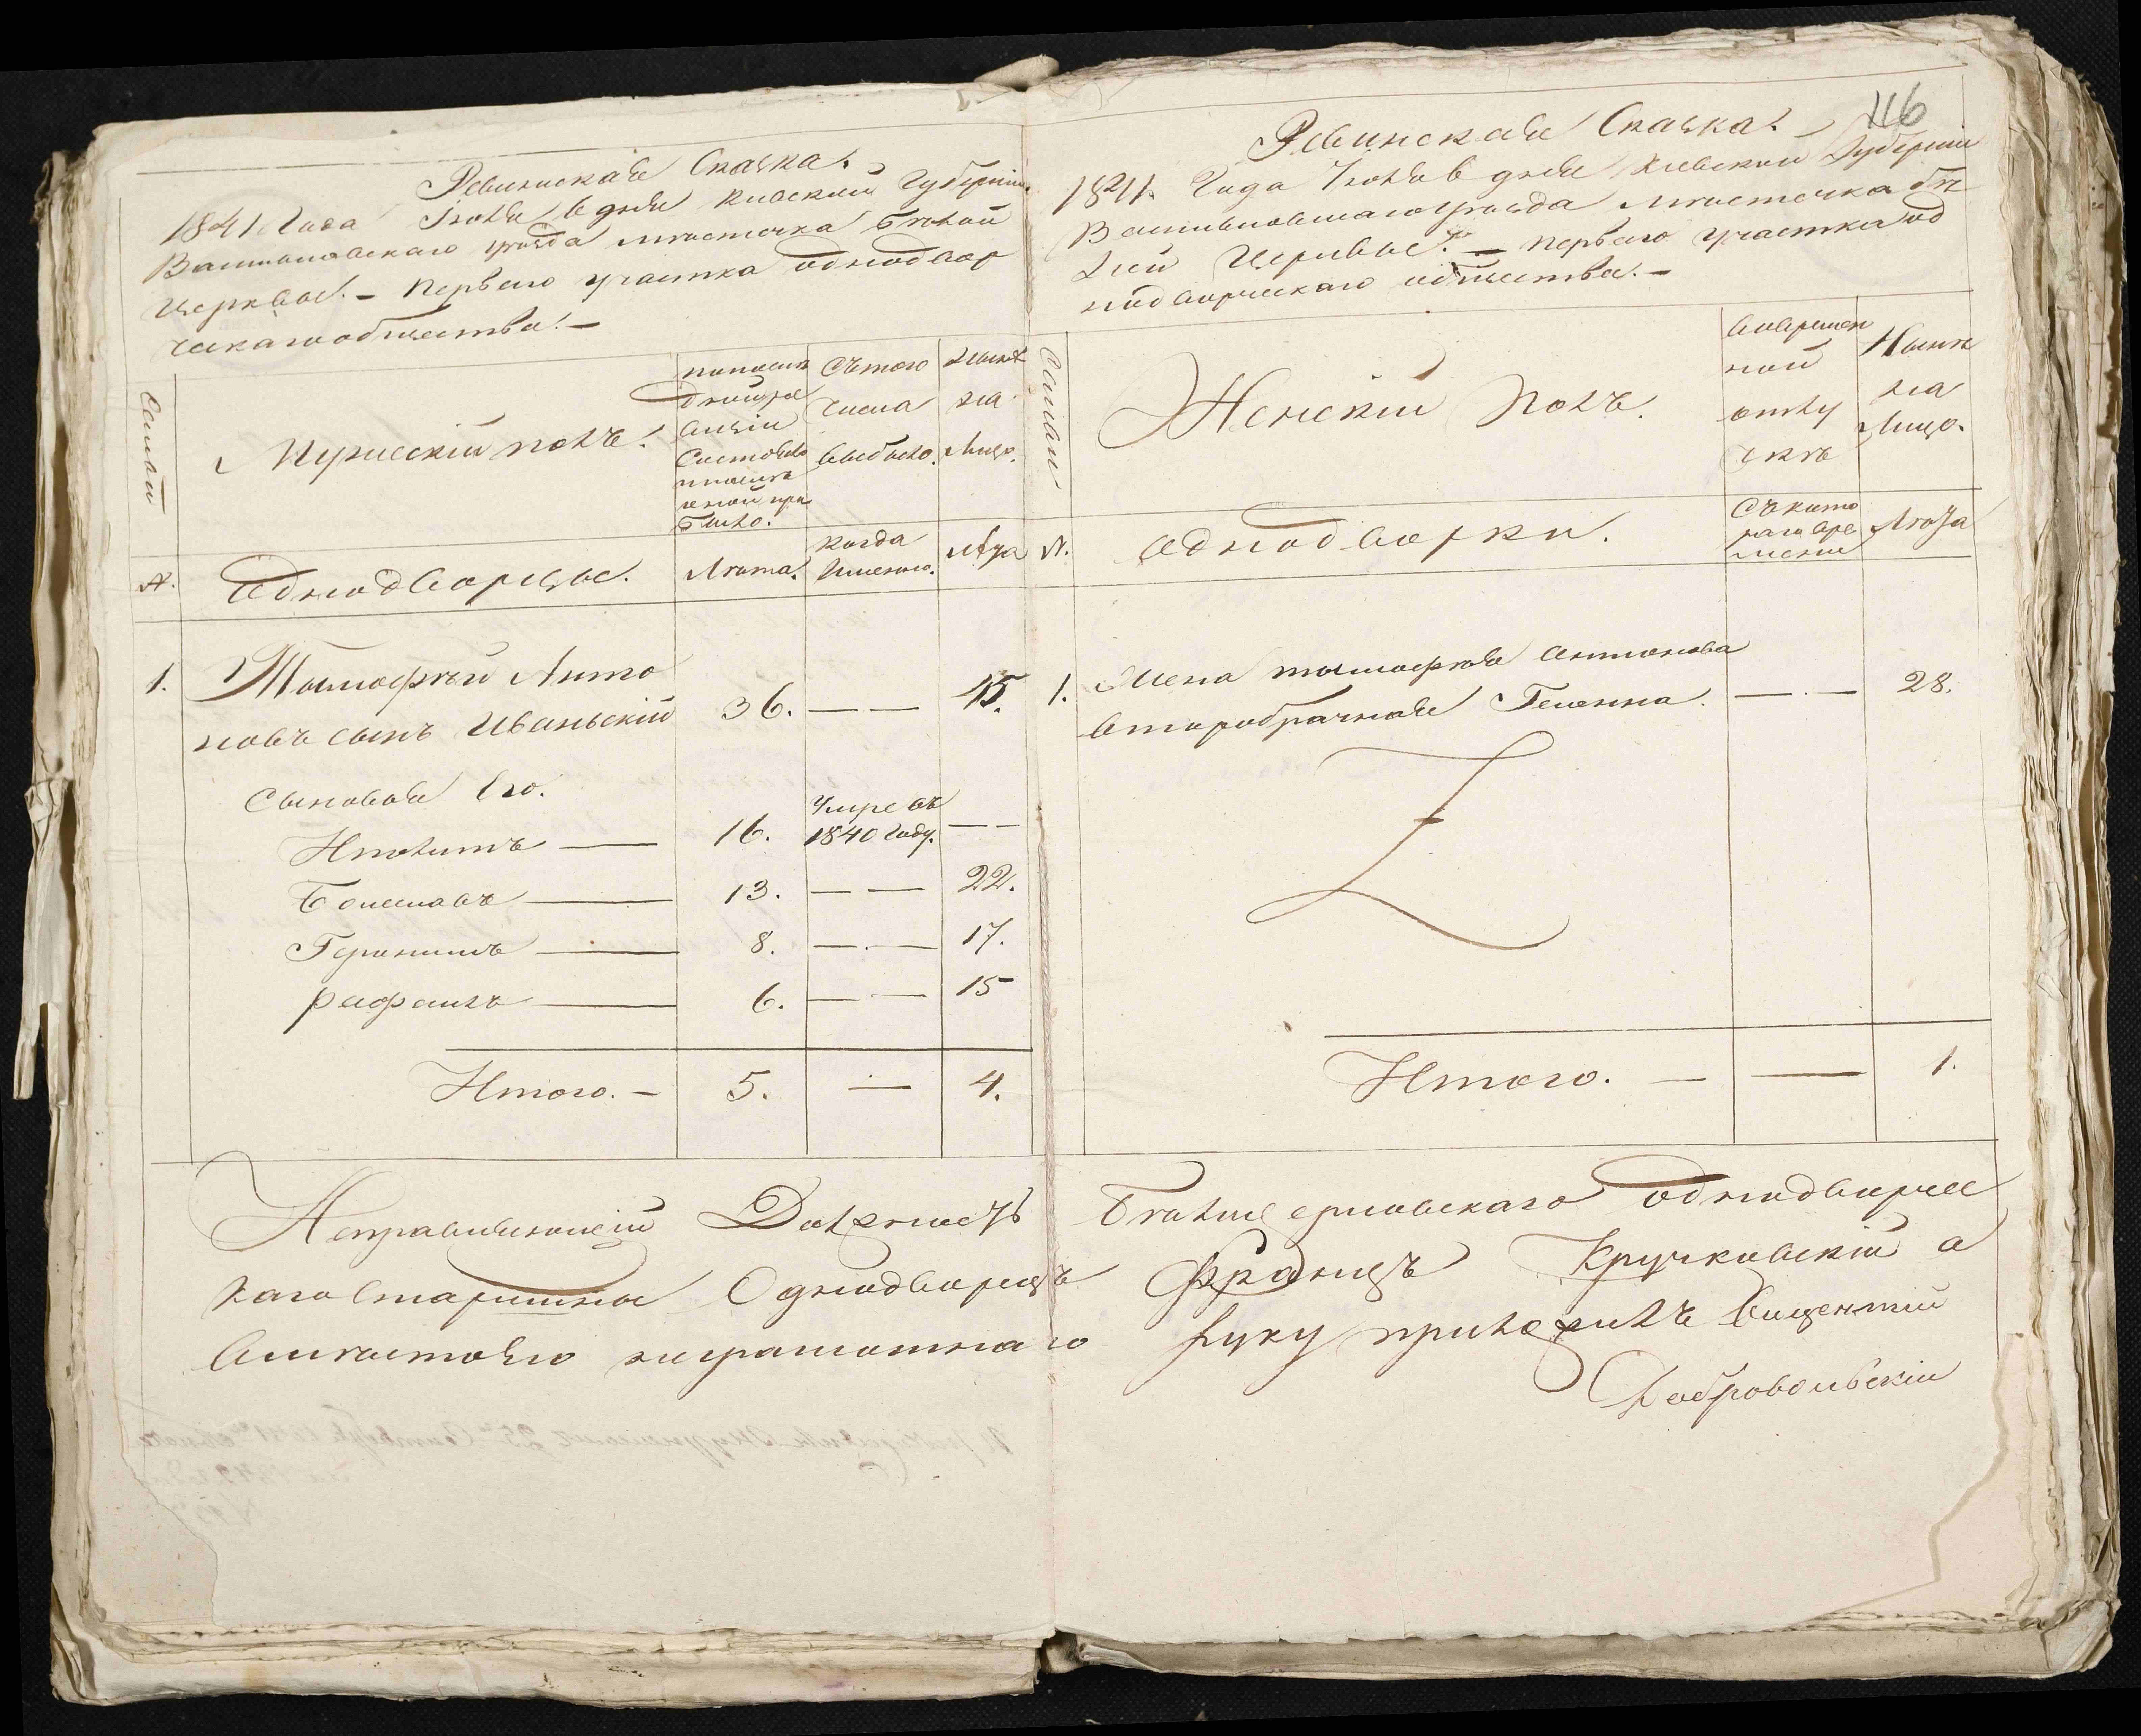 Ревизская Сказка.
1841 Года Июля в дня Киевской Губернии
Васильковскаго уѣзда мѣстечка Бѣлой
Церквы. – Перваго участка однодвор
ческаго общества. –
Семьи
Мужескій полъ.
по послѣ
дней ре
визіи
Состояло
и послѣ
оной при
было.
Съ того
числа
выбыло.
Нынѣ
на
Лицо.
№.
Однодворцы.
Лѣта.
когда
Именно.
Лѣта
1.
Тимофѣй Анто
новъ сынъ Иваньскій
36. — —
45.
Сыновья Его.
Ипполитъ —
16.
Умре въ
1840 Году.
— —
Болеславъ —
13. — —
22.
Геронимъ —
8. — —
17.
Рафаилъ —
6. — —
15
Итого. –
5.
—
4.
116
Ревизская Сказка. –
1841. Года Июля в дня Киевской Губернии
Васильковскаго уѣзда мѣстечка Бѣ
лой Церквы. — перваго участка од
нодворческаго общества. –
Семьи
Женскій Полъ.
Во времен
ной
отлу
чкѣ
Нынѣ
на
Лицо.
№.
Однодворки.
Съ кото
раго вре
мени
Лѣта
1.
Жена Тимофѣя Антонова
второбрачная Гелена.
— —
28.
Итого. —
—
1.
Исправляющій Должность Бѣлоцерковскаго однодворчес
каго Старшины Однодворецъ Францъ Кручковскій а
вмѣсто его неграмотнаго руку приложилъ Вицентий
Добровольскій